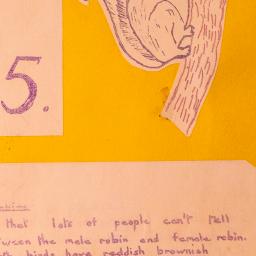 5.
that lots of people can't tell
the male robin and female robin.
birds have reddish brownish